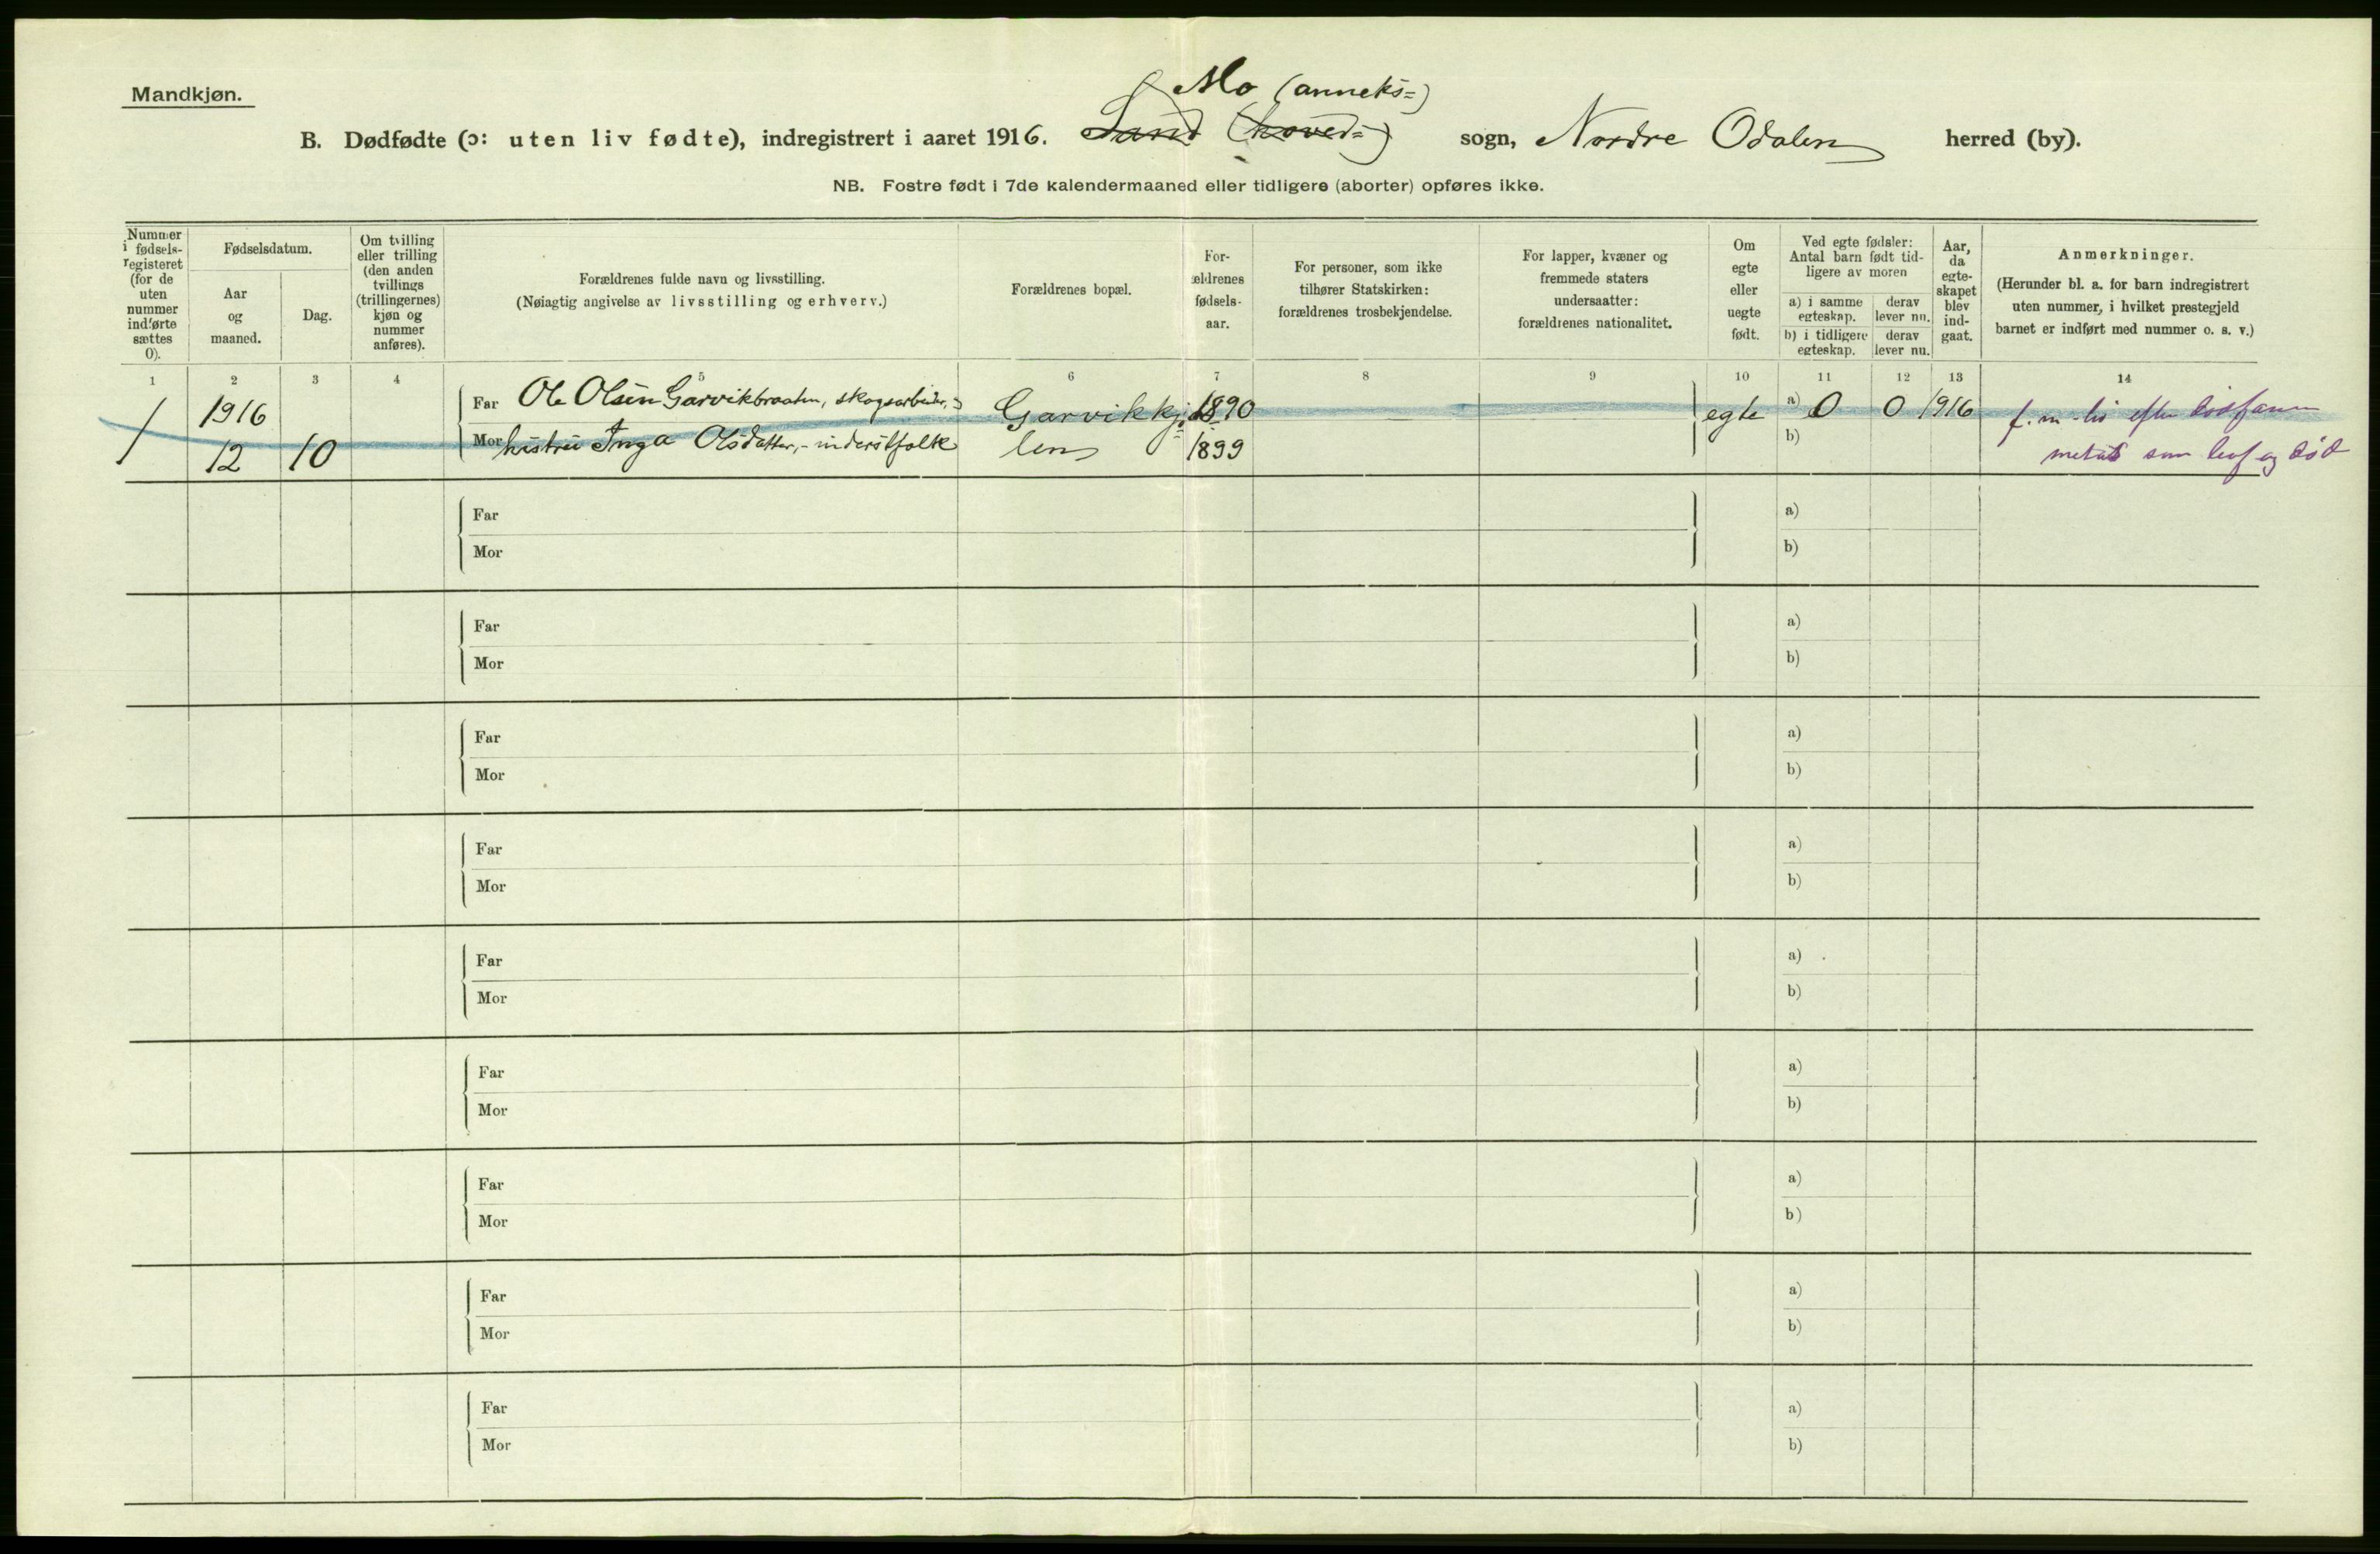 Mandkjøn.
Mo (anneks=)
B. Dødfødte (ɔ: uten liv fødte), indregistrert i aaret 1916. Sand (hoved=) sogn, Nordre Odalen herred (by).
NB. Fostre født i 7de kalendermaaned eller tidligere (aborter) opføres ikke.
Nummer
i fødsels-
registeret
(for de
uten
nummer
indførte
sættes
0).
Fødselsdatum.
Aar
og
maaned.
Dag.
Om tvilling
eller trilling
(den anden
tvillings
(trillingernes)
kjøn og
nummer
anføres).
Forældrenes fulde navn og livsstilling.
(Nøiagtig angivelse av livsstilling og erhverv.)
Forældrenes bopæl.
For-
ældrenes
fødsels-
aar.
For personer, som ikke
tilhører Statskirken:
forældrenes trosbekjendelse.
For lapper, kvæner og
fremmede staters
undersaatter:
forældrenes nationalitet.
Om
egte
eller
uegte
født.
Ved egte fødsler:
Antal barn født tid-
ligere av moren
a) i samme
egteskap.
derav
lever nu.
b) i tidligere
egteskap.
derav
lever nu.
Aar,
da
egte-
skapet
blev
ind-
gaat.
Anmerkninger.
(Herunder bl. a. for barn indregistrert
uten nummer, i hvilket prestegjeld
barnet er indført med nummer o. s. v.)
1 2 3 4 5 6 7 8 9 10 11 12 13 14
1 1916 Far Ole Olsen Garvikbraaten, skogsarbeider, Garvikkj 1890 egte a) 0 0 1916 f. m. liv efter
12 10 Mor hustru Inga Olsdatter, - inderstfolk len 1899 b) som lev og død
Far a)
Mor b)
Far a)
Mor b)
Far a)
Mor b)
Far a)
Mor b)
Far a)
Mor b)
Far a)
Mor b)
Far a)
Mor b)
Far a)
Mor b)
Far a)
Mor b)